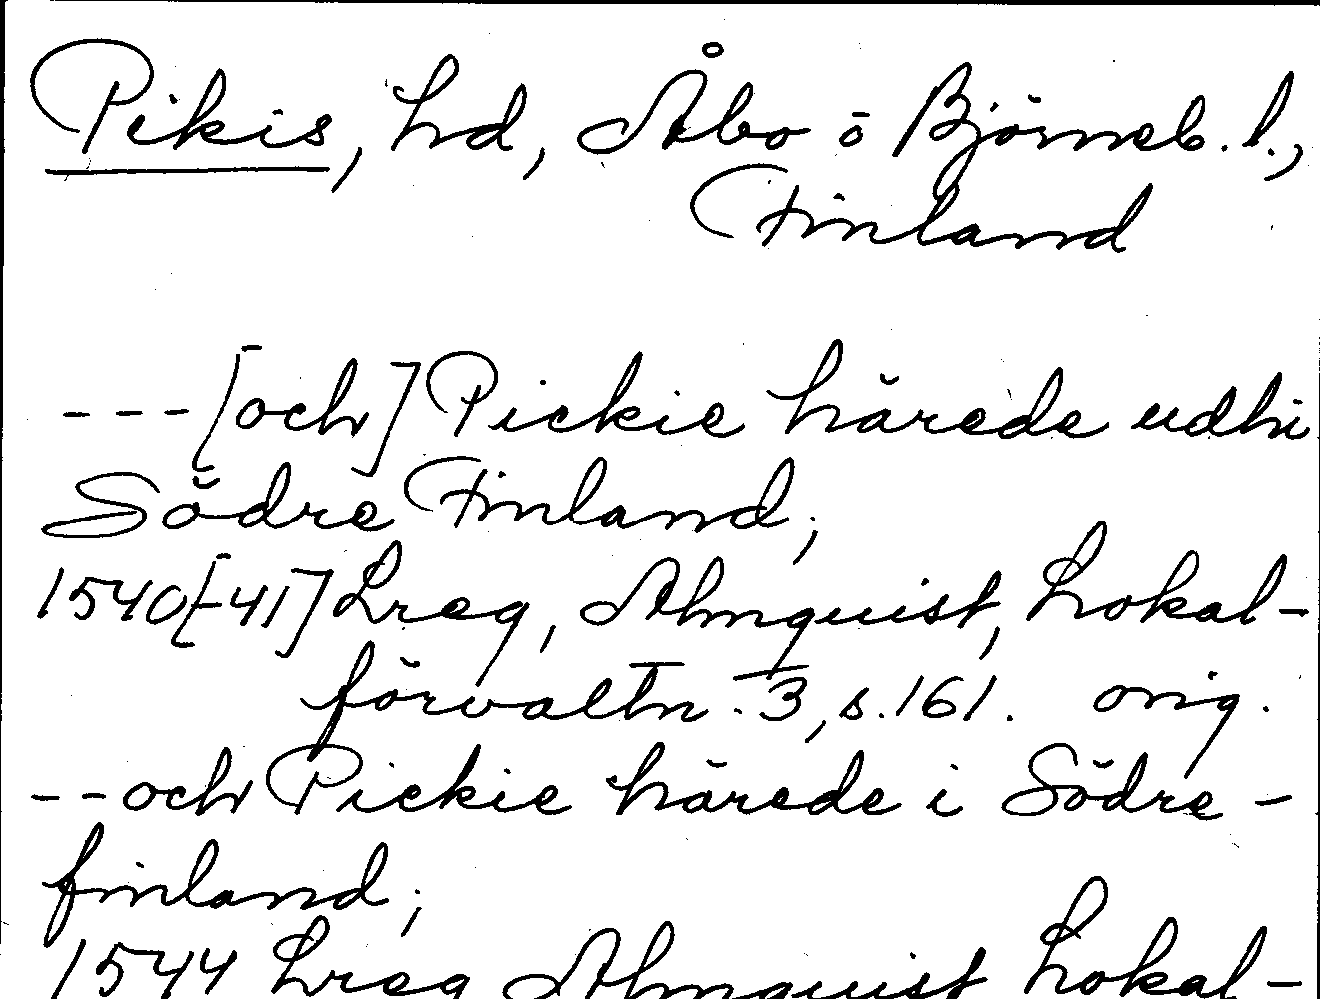 Pikis, hd, Åbo ö Björneb. l.,
Finland
---[och] Pickie härede udhi
Södre Finland;
1540[-41] Lreg, Almquist, Lokal-
förvaltn. 3, s. 161. orig.
--och Pickie härede i Södre-
finland;
1544 Lreg Almquist Lokal-